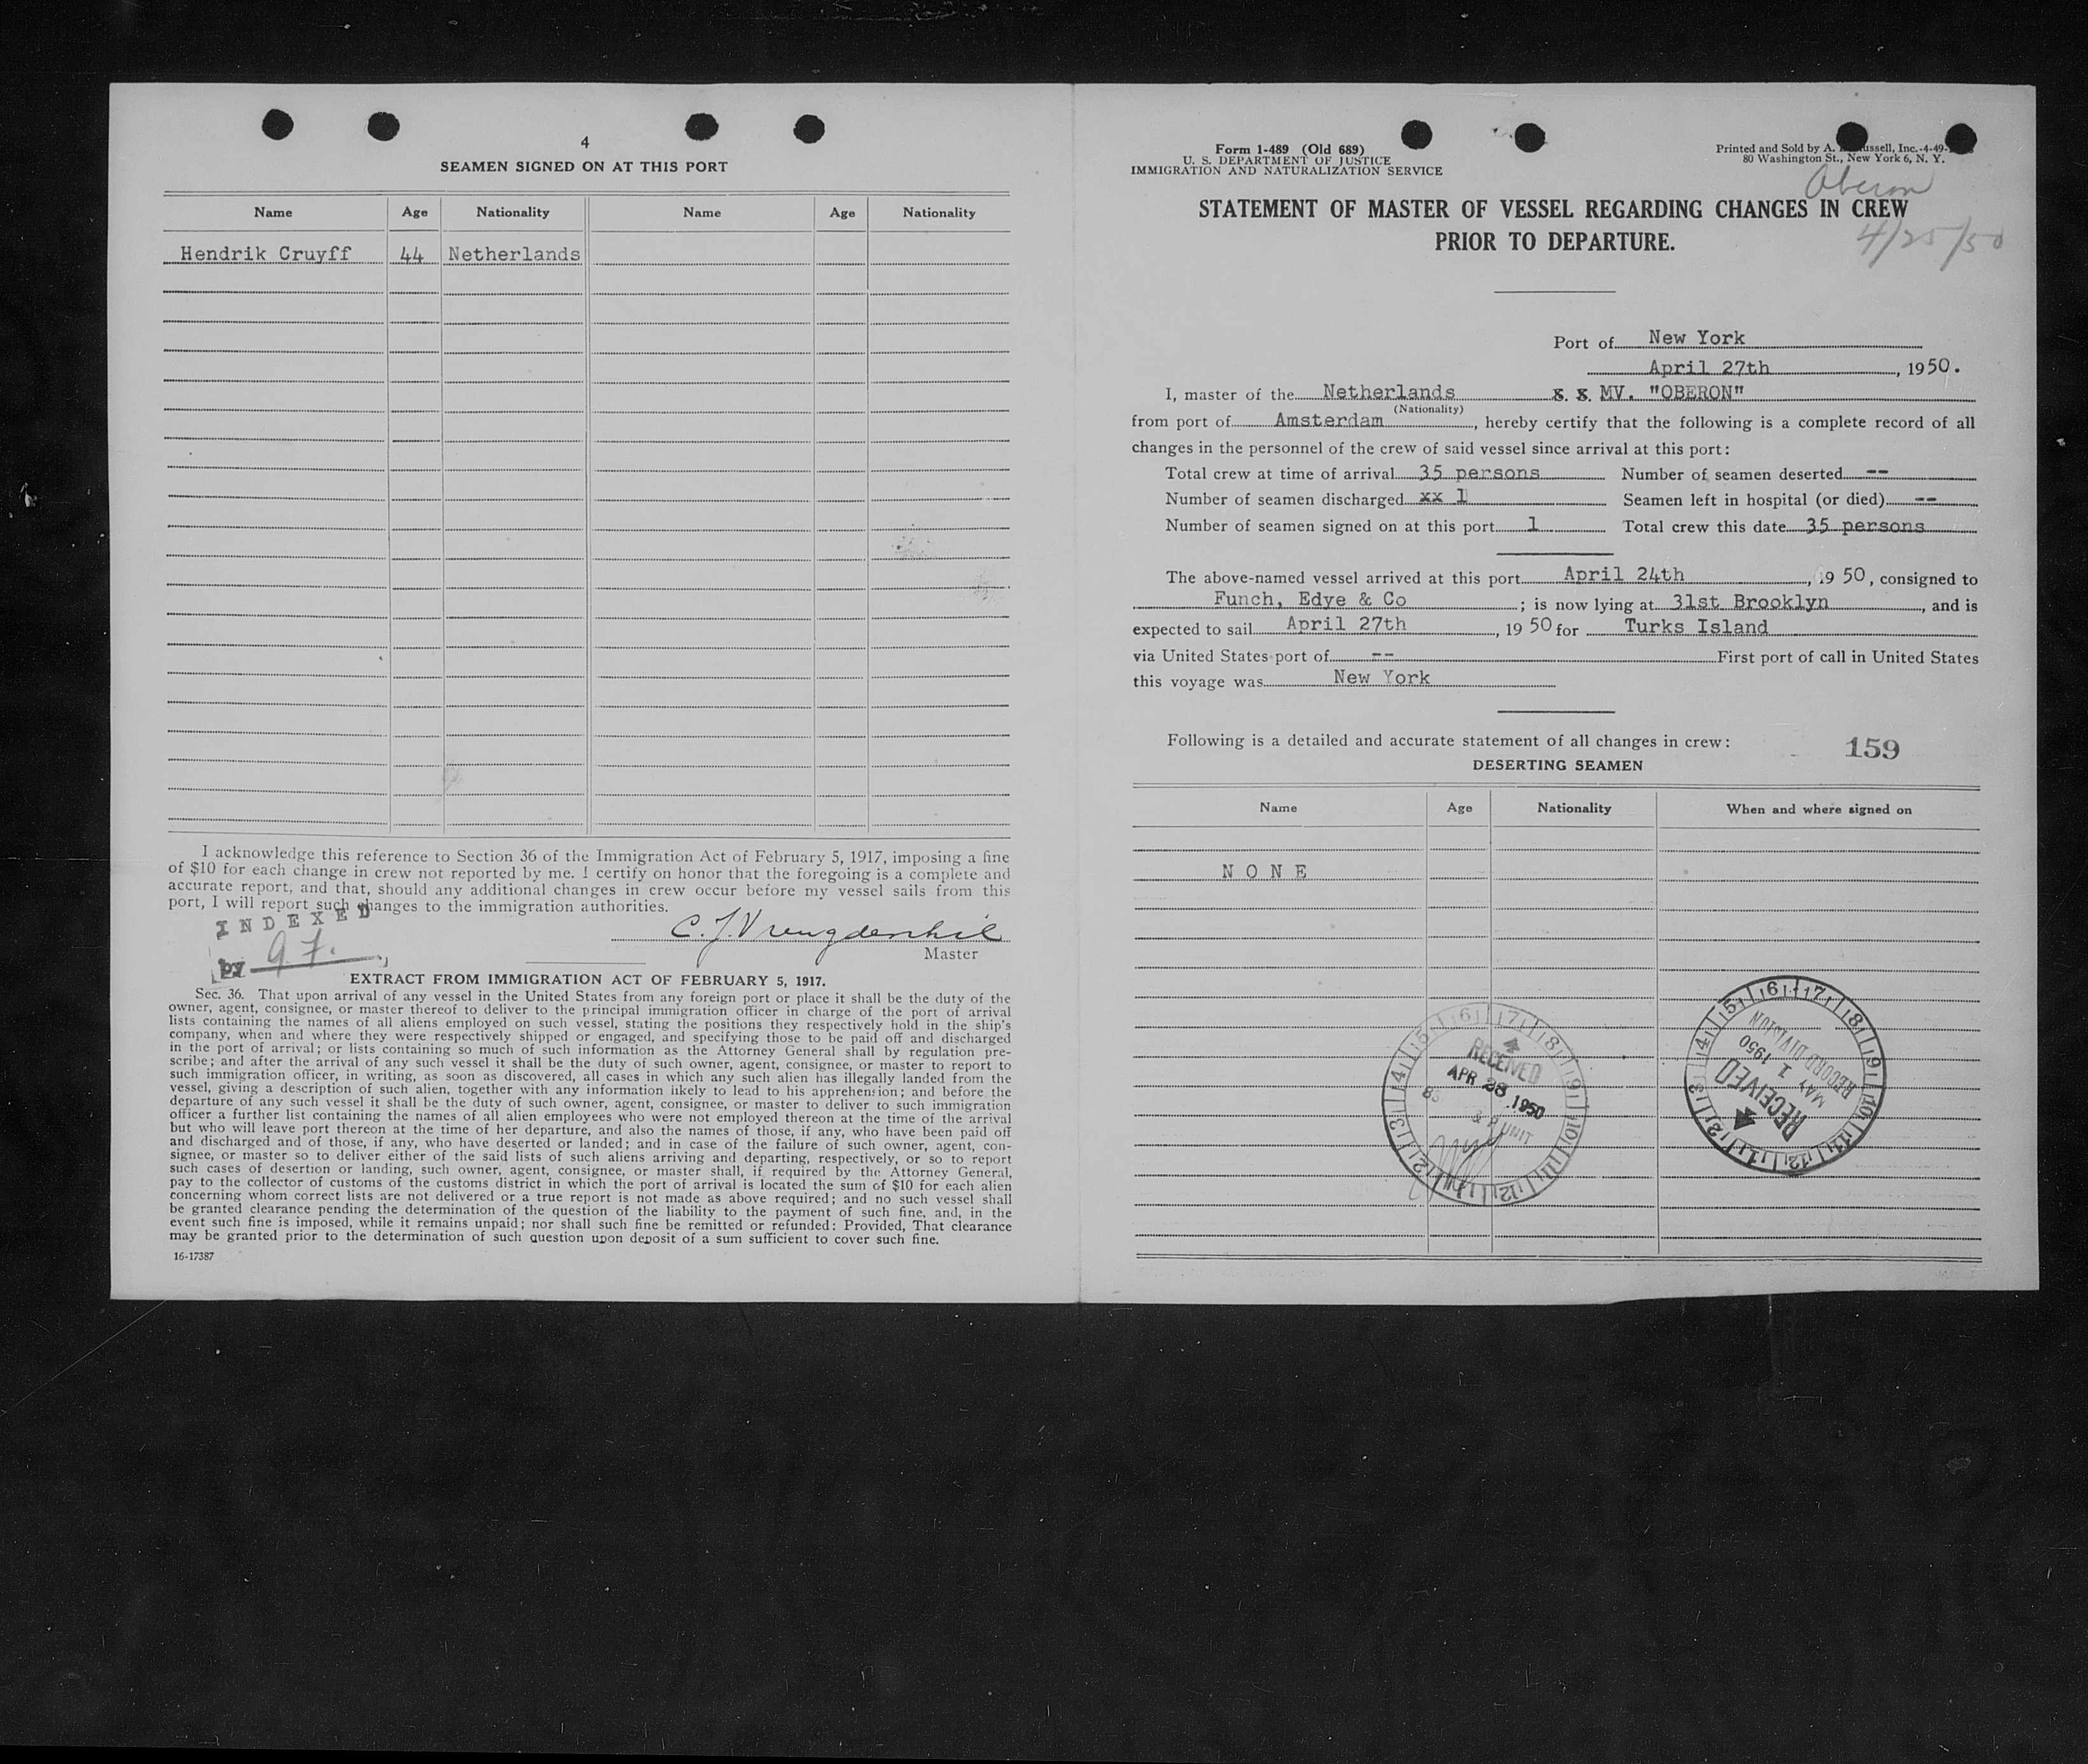 4
SEAMEN SIGNED ON AT THIS PORT
Name Age Nationality Name Age Nationality
Hendrik Cruyff 44 Netherlands
I acknowledge this reference to Section 36 of the Immigration Act of February 5, 1917, imposing a fine
of $10 for each change in crew not reported by me. I certify on honor that the foregoing is a complete and
accurate report, and that, should any additional changes in crew occur before my vessel sails from this
port, I will report such changes to the immigration authorities.
INDEXED
by
C. J. Vreugdenhil
Master
EXTRACT FROM IMMIGRATION ACT OF FEBRUARY 5, 1917.
Sec. 36. That upon arrival of any vessel in the United States from any foreign port or place it shall be the duty of the
owner, agent, consignee, or master thereof to deliver to the principal immigration officer in charge of the port of arrival
lists containing the names of all aliens employed on such vessel, stating the positions they respectively hold in the ship's
company, when and where they were respectively shipped or engaged, and specifying those to be paid off and discharged
in the port of arrival; or lists containing so much of such information as the Attorney General shall by regulation pre-
scribe; and after the arrival of any such vessel it shall be the duty of such owner, agent, consignee, or master to report to
such immigration officer, in writing, as soon as discovered, all cases in which any such alien has illegally landed from the
vessel, giving a description of such alien, together with any information likely to lead to his apprehension; and before the
departure of any such vessel it shall be the duty of such owner, agent, consignee, or master to deliver to such immigration
officer a further list containing the names of all alien employees who were not employed thereon at the time of the arrival
but who will leave port thereon at the time of her departure, and also the names of those, if any, who have been paid off
and discharged and of those, if any, who have deserted or landed; and in case of the failure of such owner, agent, con-
signee, or master so to deliver either of the said lists of such aliens arriving and departing, respectively, or so to report
such cases of desertion or landing, such owner, agent, consignee, or master shall, if required by the Attorney General,
pay to the collector of customs of the customs district in which the port of arrival is located the sum of $10 for each alien
concerning whom correct lists are not delivered or a true report is not made as above required; and no such vessel shall
be granted clearance pending the determination of the question of the liability to the payment of such fine, and, in the
event such fine is imposed, while it remains unpaid; nor shall such fine be remitted or refunded: Provided, That clearance
may be granted prior to the determination of such question upon deposit of a sum sufficient to cover such fine.
16-17387
Form 1-489 (Old 689)
U. S. DEPARTMENT OF JUSTICE
IMMIGRATION AND NATURALIZATION SERVICE
Printed and Sold by A. ussell, Inc.-4-49-
80 Washington St., New York 6, N. Y.
Oberon
STATEMENT OF MASTER OF VESSEL REGARDING CHANGES IN CREW
PRIOR TO DEPARTURE.
4/25/50
Port of New York
April 27th, 1950.
I, master of the Netherlands S. S. MV. "OBERON"
(Nationality)
from port of Amsterdam, hereby certify that the following is a complete record of all
changes in the personnel of the crew of said vessel since arrival at this port:
Total crew at time of arrival 35 persons Number of seamen deserted --
Number of seamen discharged xx 1 Seamen left in hospital (or died) --
Number of seamen signed on at this port 1 Total crew this date 35 persons
The above-named vessel arrived at this port April 24th, 19 50, consigned to
Funch, Edye & Co; is now lying at 31st Brooklyn, and is
expected to sail April 27th, 19 50 for Turks Island
via United States port of -- First port of call in United States
this voyage was New York
Following is a detailed and accurate statement of all changes in crew: 159
DESERTING SEAMEN
Name Age Nationality When and where signed on
NONE
RECEIVED
APR 28 1950
& P UNIT
RECEIVED
MAY 1 1950
RECORD DIVISION